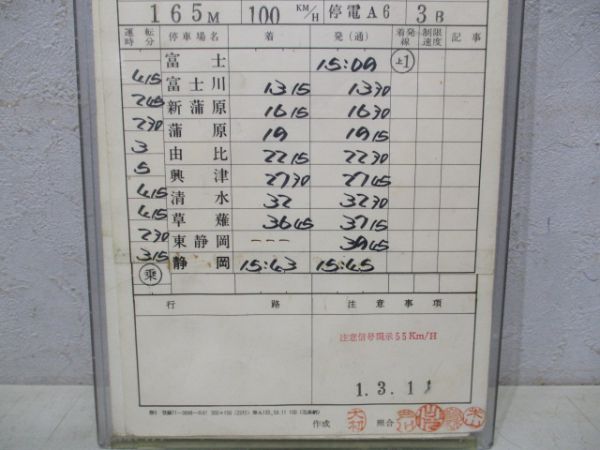 165M 100 KM/H 停電A6 3B
運転時分 停車場名 着 発(通) 着発線 制限速度 記事
富士 15:09 上1
415
富士川 1315 1330
245
新蒲原 1615 1630
230
蒲原 19 1915
3
由比 2215 2230
5
興津 2730 2745
415
清水 32 3230
415
草薙 3645 3715
230
東静岡 --- 3945
315
静岡 15:43 15:45
乗
行路 注意事項
注意信号現示55Km/H
1.3.11
作成 大初 照合